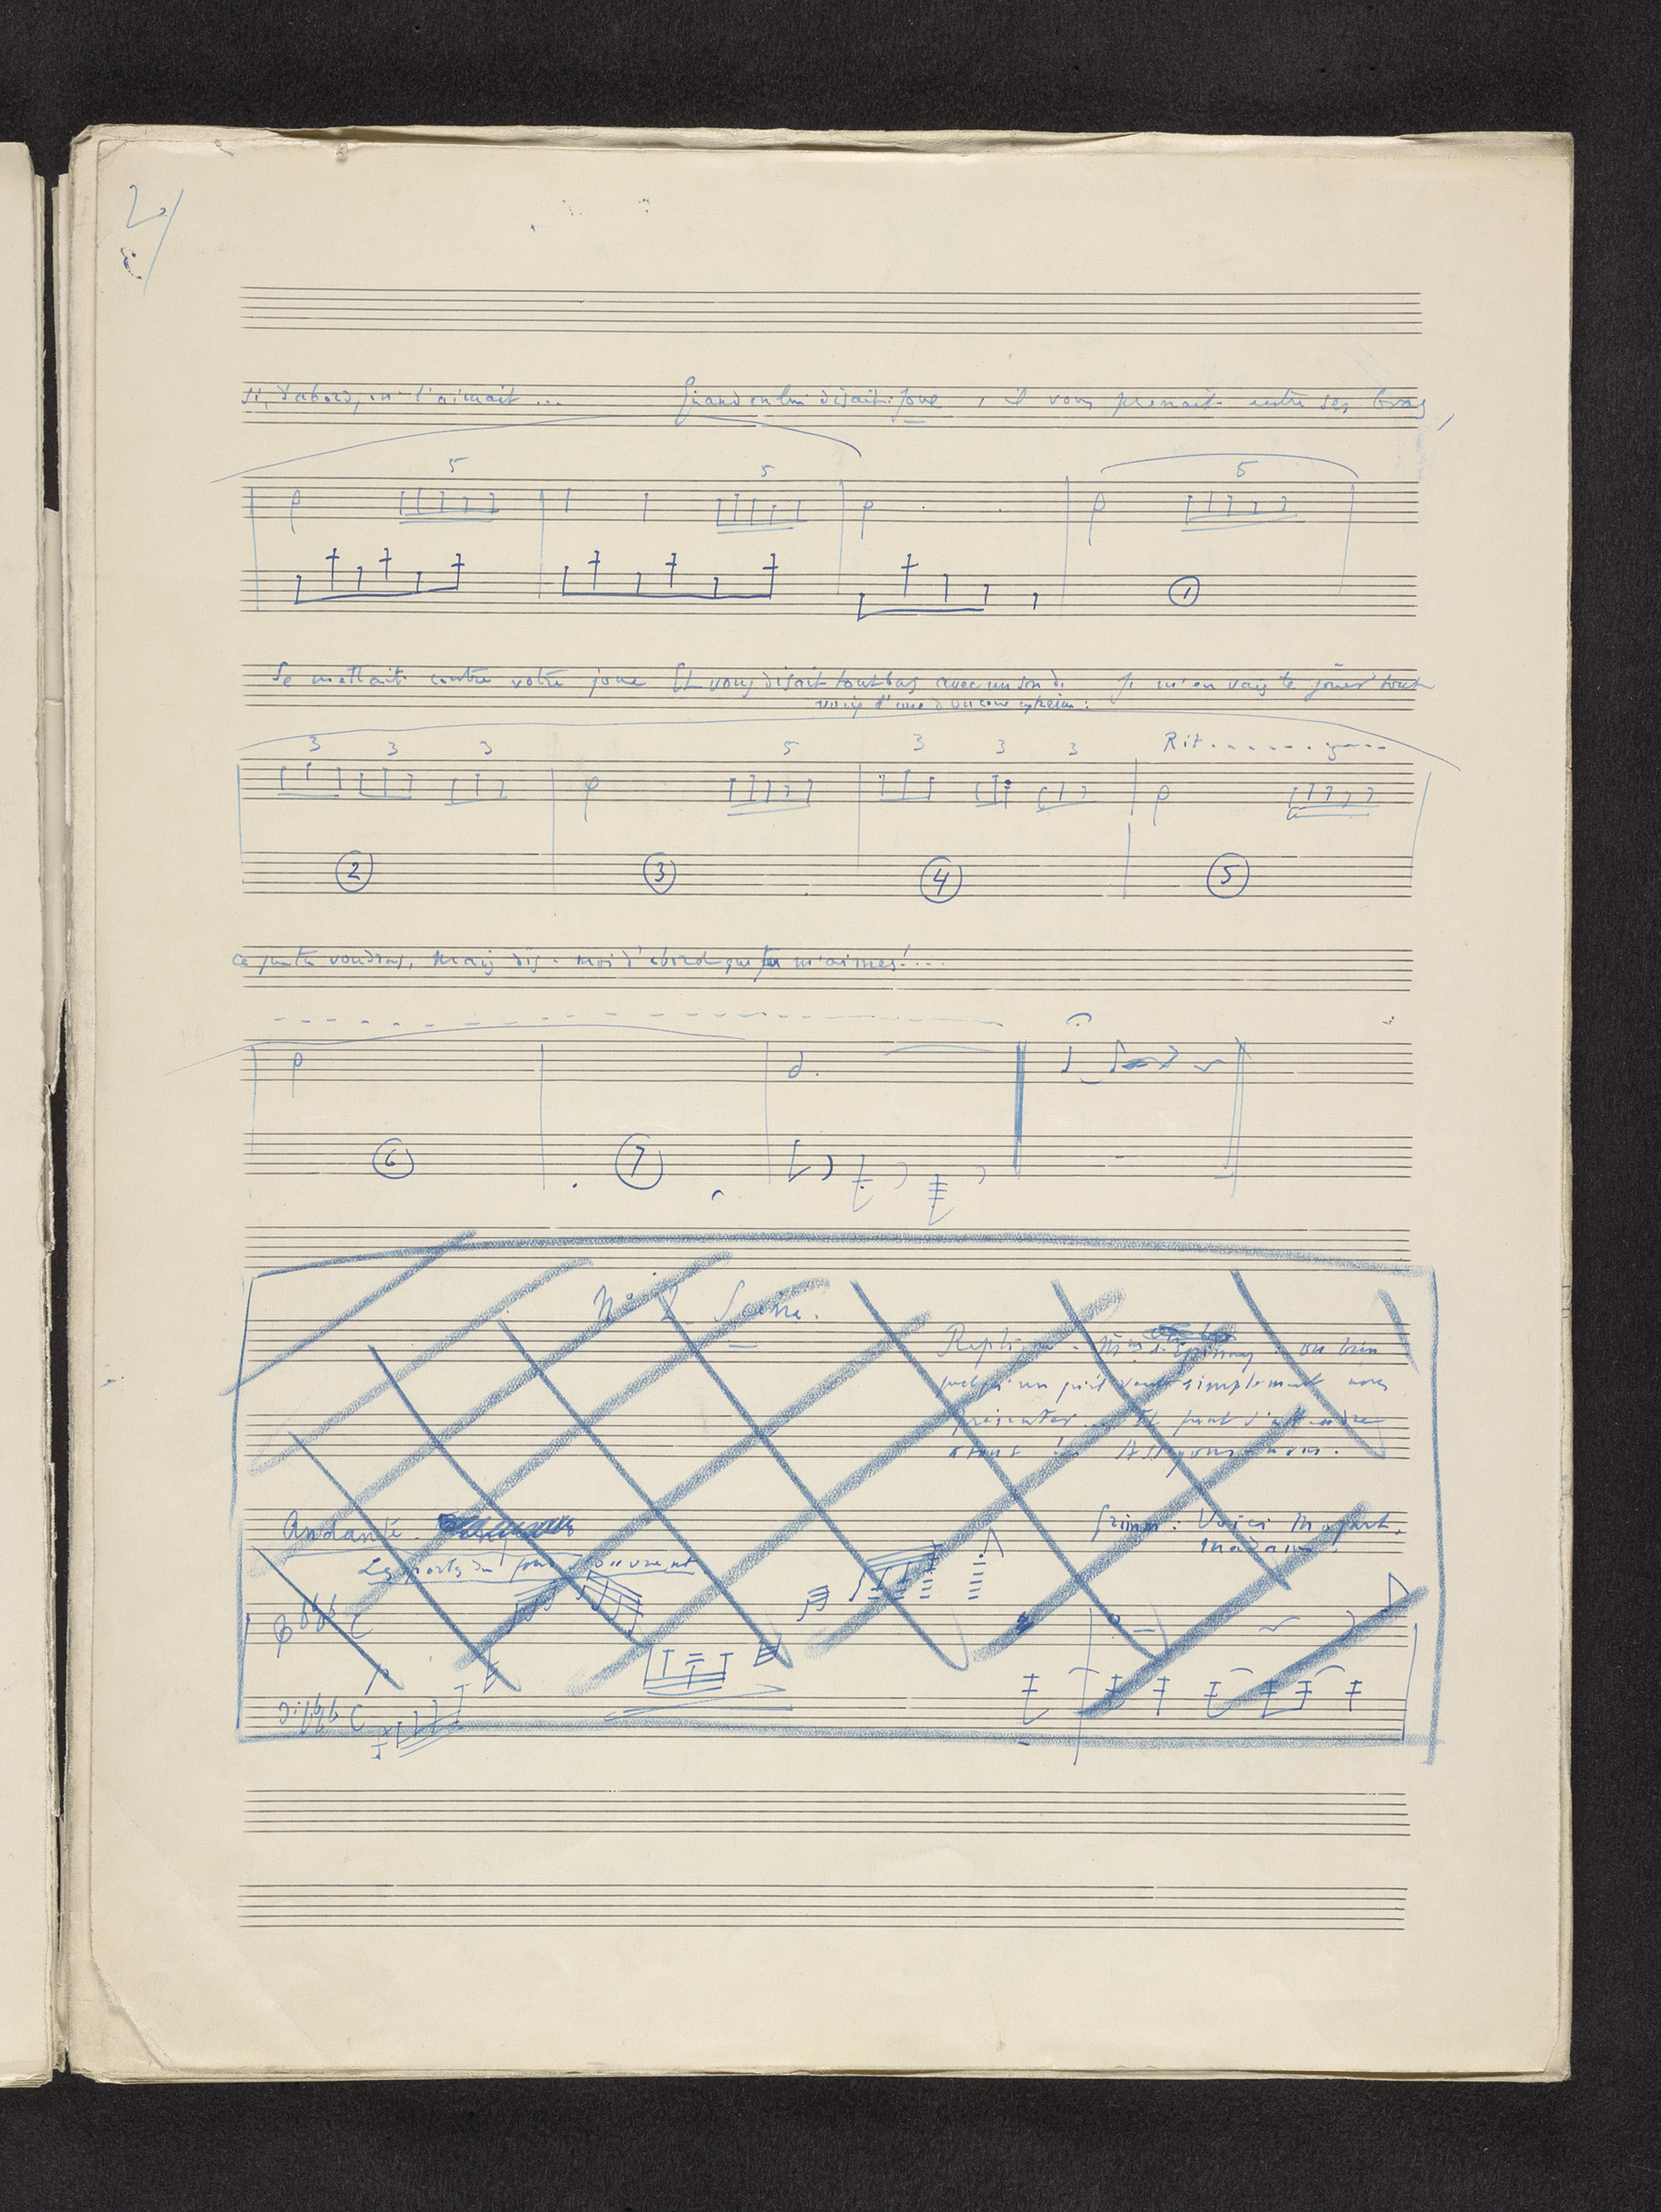 2
si, d'abord, on l'aimait ... Quand on lui disait: Joue, il vous prenait entre ses bras,
5 5 5
1
Se mettait contre votre joue Et vous disait tout bas avec un son de Je m'en vais te jouer tout
voix d'une douceur extrême:
3 3 3 5 3 3 3 Rit
2 3 4 5
ce que tu voudras, Mais dis-moi d'abord que tu m'aimes!...
6 7
No 2 Scène.
Réplique. Mme d'Epinay: ou bien
quelqu'un qu'il veut simplement nous
présenter... Il faut s'attendre
à tout! Asseyons-nous.
Andante.
Grimm: Voici Mozart,
Madame!
Les portes du fond s'ouvrent
p